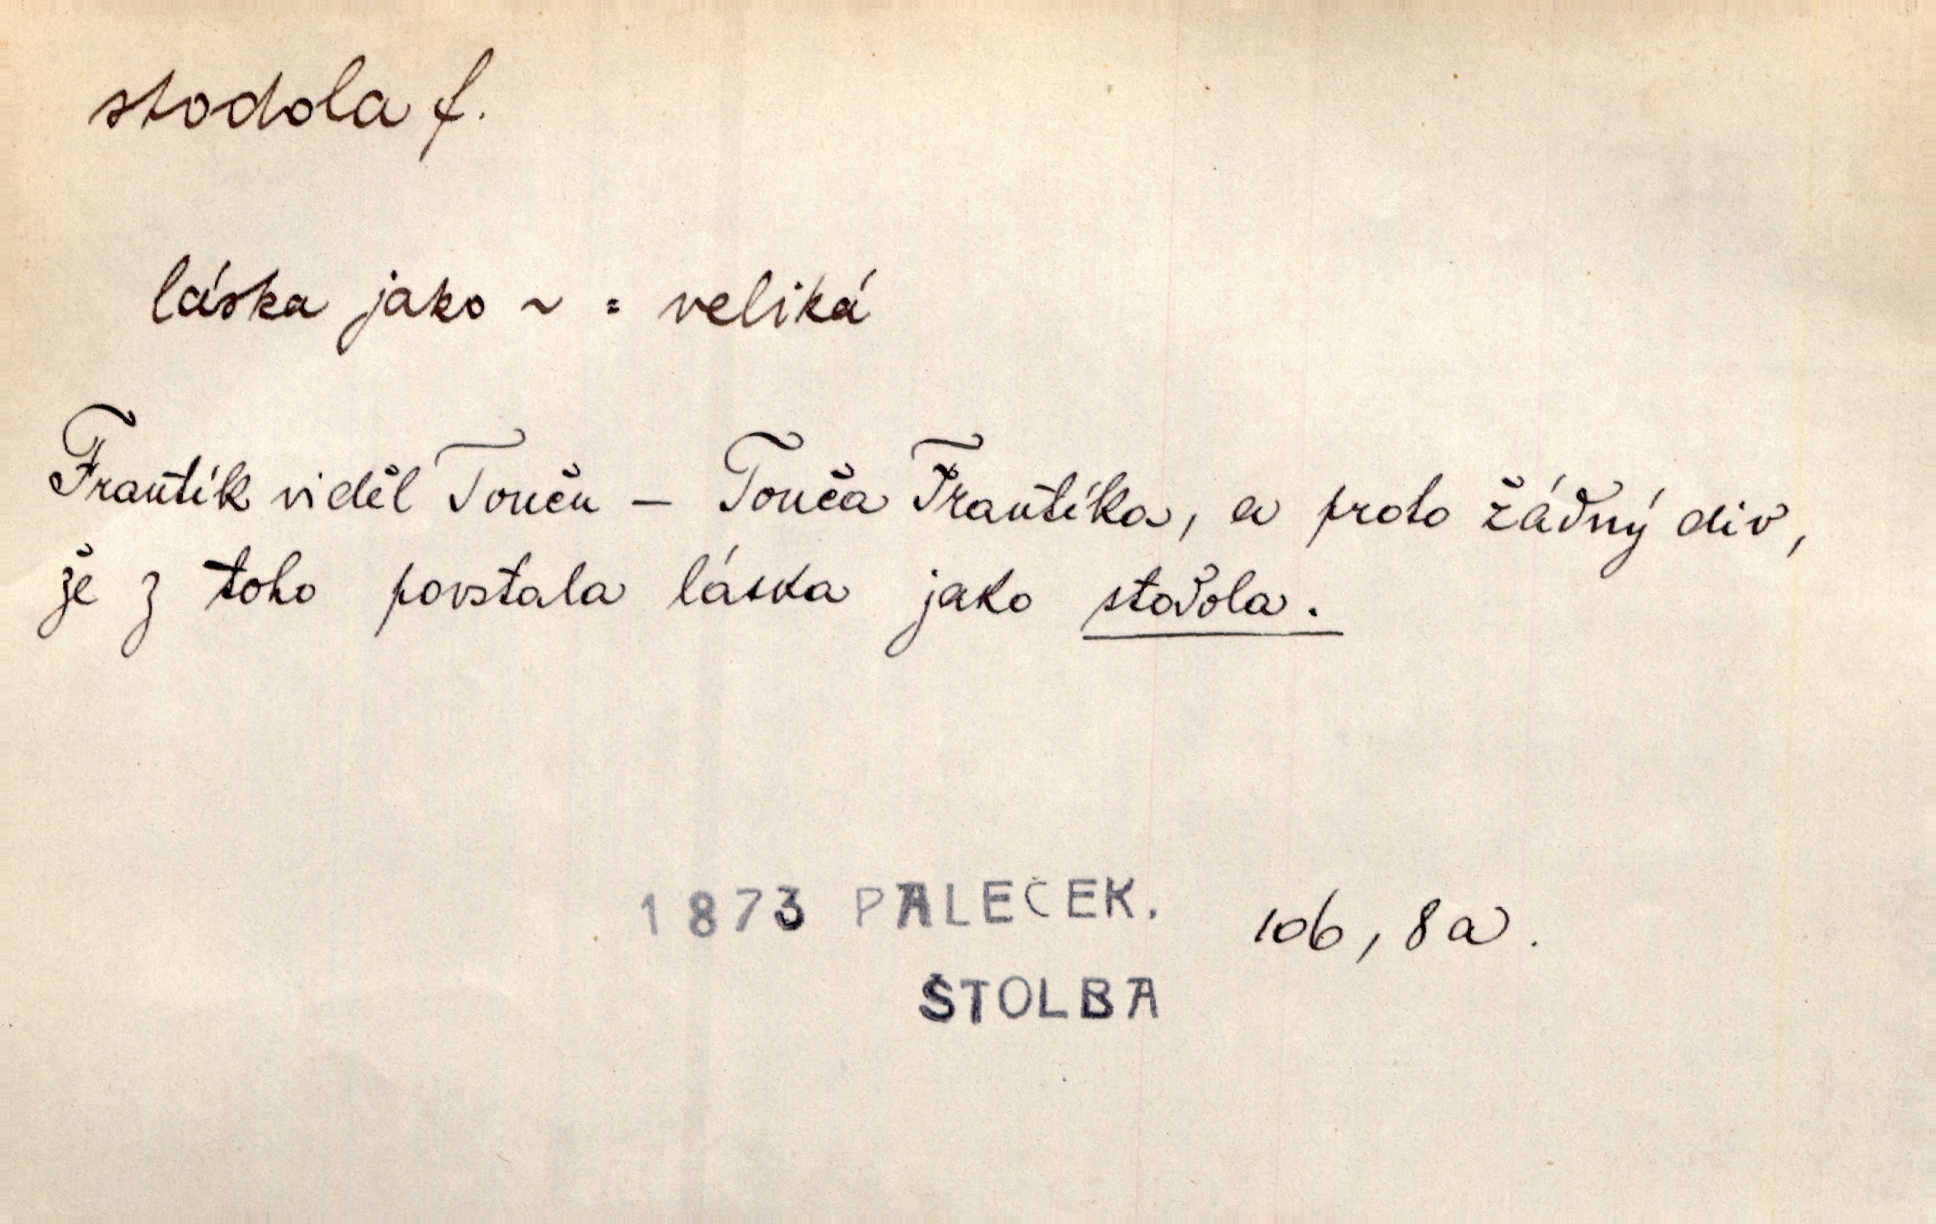 stodola f.
láska jako ~ = veliká
Frantík viděl Tonču – Tonča Frantíka, a proto žádný div,
že z toho povstala láska jako stodola.
1873 PALEČEK. 106, 8a.
ŠTOLBA